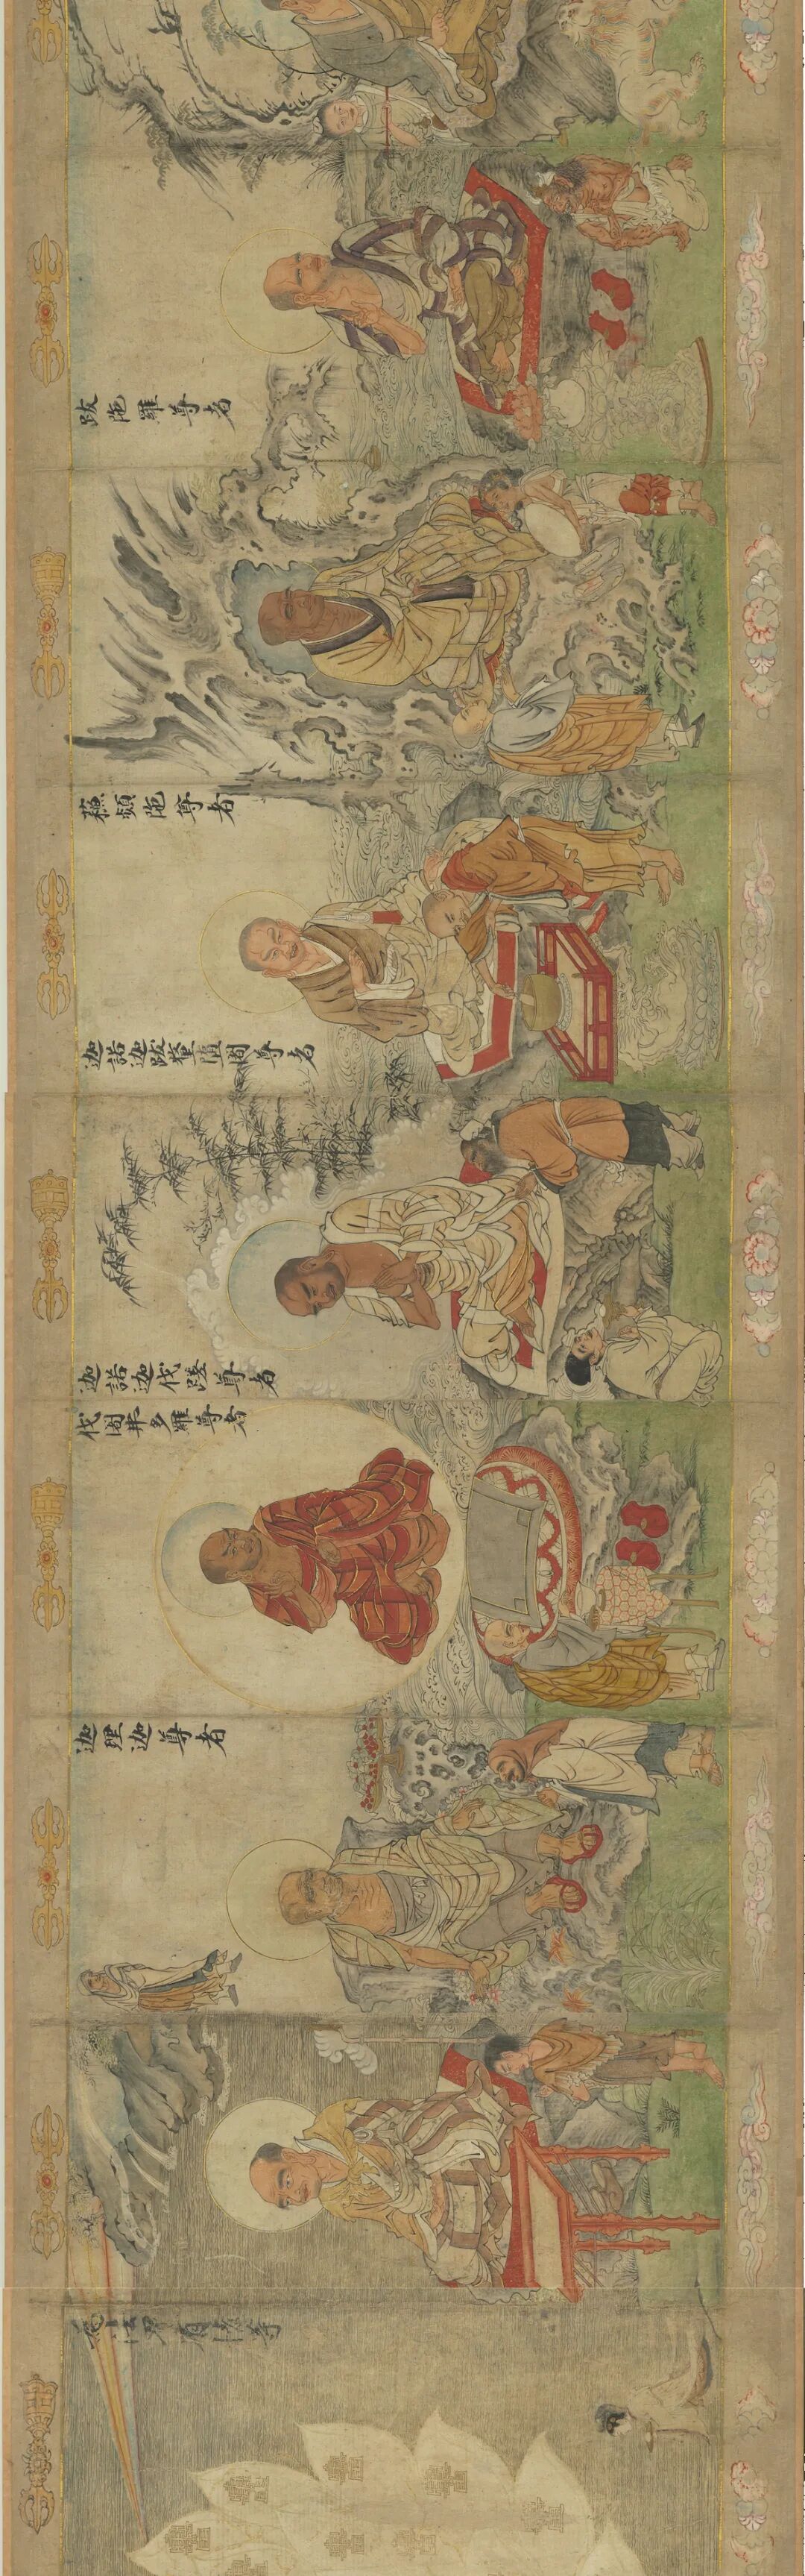 跋陁羅尊者
蘓頻陁尊者
迦諾迦跋釐堕闍尊者
迦諾迦伐蹉尊者
伐闍弗多羅尊者
迦理迦尊者